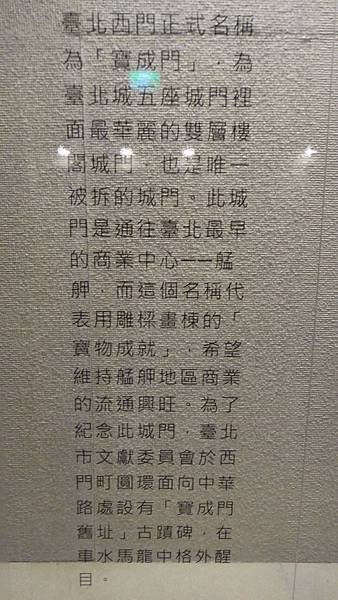 臺北西門正式名稱
為「寶成門」，為
臺北城五座城門裡
面最華麗的雙層樓
閣城門，也是唯一
被拆的城門。此城
門是通往臺北最早
的商業中心──艋
舺，而這個名稱代
表用雕樑畫棟的「
寶物成就」，希望
維持艋舺地區商業
的流通興旺。為了
紀念此城門，臺北
市文獻委員會於西
門町圓環面向中華
路處設有「寶成門
舊址」古蹟碑，在
車水馬龍中格外醒
目。